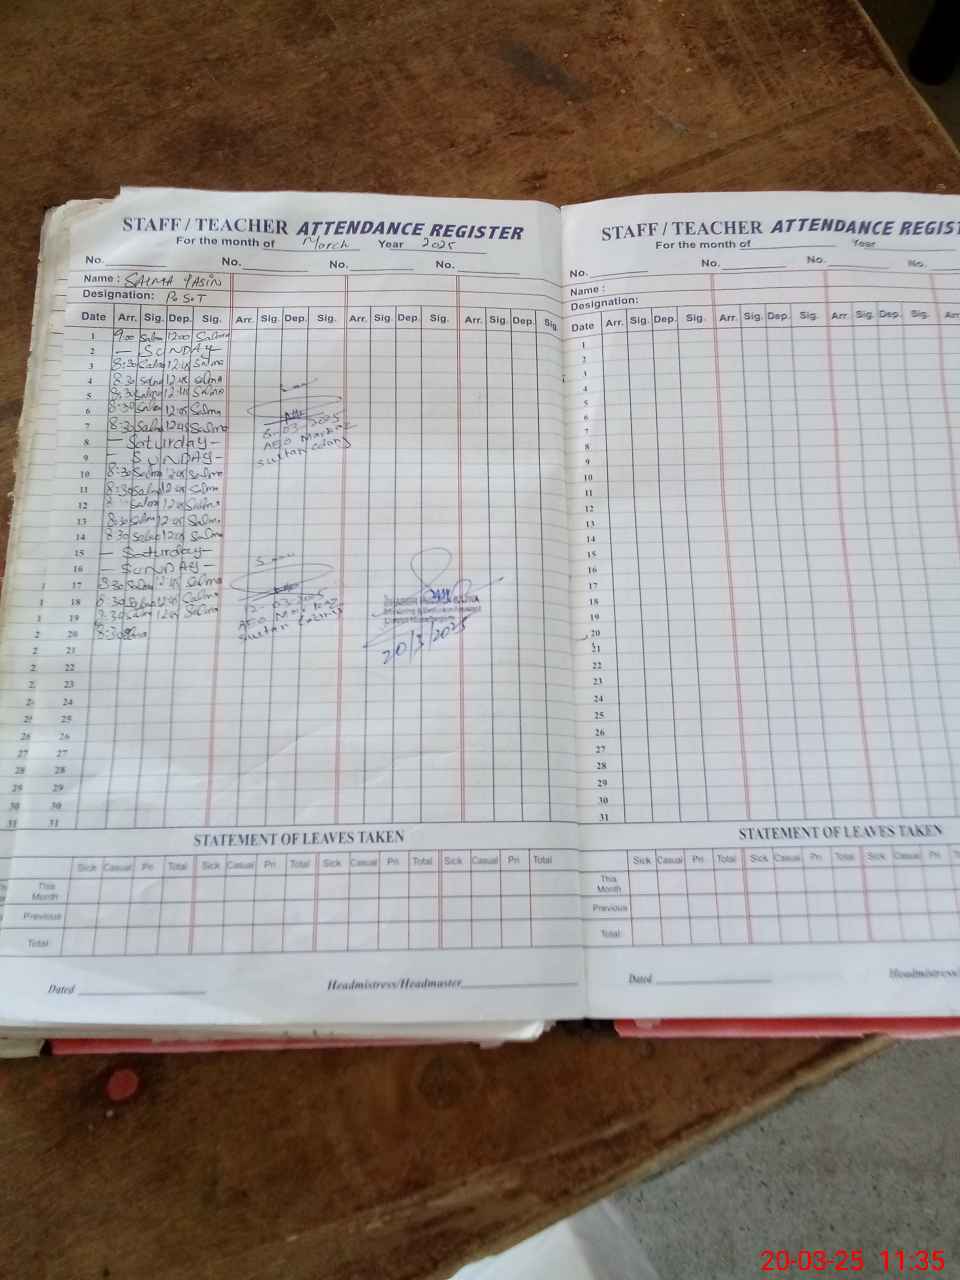 STAFF / TEACHER ATTENDANCE REGISTER
For the month of March Year 2025
No. No. No. No.
Name : SALMA YASIN
Designation: P.S.T
Date Arr. Sig. Dep. Sig. Arr. Sig. Dep. Sig. Arr. Sig. Dep. Sig. Arr. Sig. Dep. Sig.
1 9:00 Salma 12:00 Salma
2 — SUNDAY —
3 8:30 Salma 12:45 Salma
4 8:30 Salma 12:45 Salma
5 8:30 Salma 12:45 Salma
6 8:30 Salma 12:45 Salma
7 8:30 Salma 12:45 Salma
8 — Saturday —
9 — SUNDAY —
10 8:30 Salma 12:45 Salma
11 8:30 Salma 12:45 Salma
12 Salma 12:45 Salma
13 8:30 Salma 12:45 Salma
14 8:30 Salma 12:45 Salma
15 — Saturday —
16 — SUNDAY —
17 8:30 Salma 12:45 Salma
18 8:30 Salma 12:45 Salma
19 8:30 Salma 12:45 Salma
20 8:30
21
22
23
24
25
26
27
28
29
30
31
8-03-2025
AEO Markaz
Sultan Colony
12-03-2025
AEO Markaz
Sultan Colony
20/3/2025
STATEMENT OF LEAVES TAKEN
Sick Casual Pri Total Sick Casual Pri Total Sick Casual Pri Total Sick Casual Pri Total
This Month
Previous
Total:
Dated Headmistress/Headmaster
STAFF / TEACHER ATTENDANCE
For the month of Year
No. No. No. No.
Name :
Designation:
Date Arr. Sig. Dep. Sig. Arr. Sig. Dep. Sig. Arr. Sig. Dep. Sig.
1
2
3
4
5
6
7
8
9
10
11
12
13
14
15
16
17
18
19
20
21
22
23
24
25
26
27
28
29
30
31
STATEMENT OF LEAVES TAKEN
Sick Casual Pri Total Sick Casual Pri Total Sick Casual Pri
This Month
Previous
Total:
Dated
20-03-25 11:35